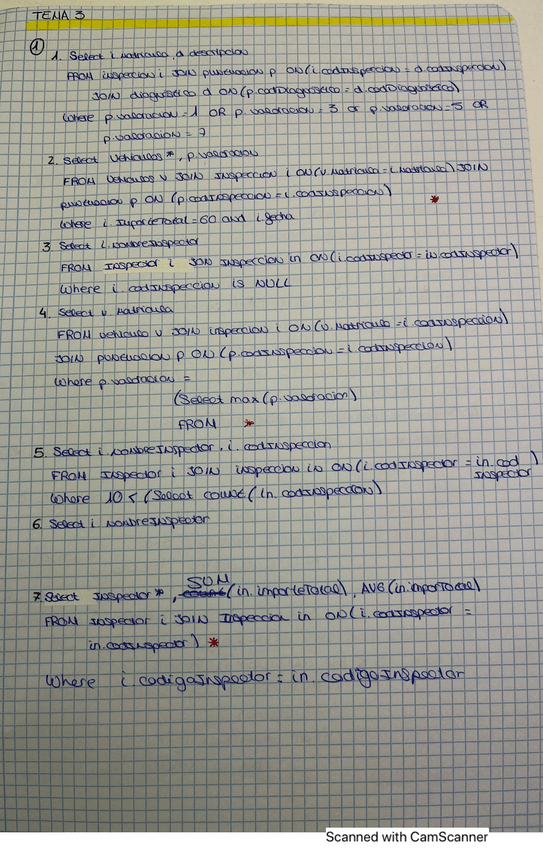 TEMA 3
①
1. Select i.matricula, d.descripcion
FROM inspeccion i JOIN puntuacion p ON (i.codInspeccion = d.codInspeccion)
JOIN diagnostico d ON (p.codDiagnostico = d.codDiagnostico)
Where p.valoracion = 1 OR p.valoracion = 3 or p.valoracion = 5 OR
p.valoracion = 7
2. Select Vehiculos *, p.valoracion
FROM Vehiculos v JOIN Inspeccion i ON (v.Matricula = i.Matricula) JOIN
puntuacion p ON (p.codInspeccion = i.codInspeccion)
Where i.ImporteTotal = 60 and i.fecha *
3 Select i.NombreInspector
FROM Inspector i JOIN Inspeccion in ON (i.codInspector = in.codInspector)
Where i.codInspeccion is NULL
4. Select v.Matricula
FROM vehiculo v JOIN inspeccion i ON (v.Matricula = i codInspeccion)
JOIN puntuacion p ON (p.codInspeccion = i codInspeccion)
Where p.valoracion =
(Select max (p.valoracion)
FROM *
5. Select i.NombreInspector, i.codInspeccion
FROM Inspector i JOIN inspeccion in ON (i.codInspector = in.cod Inspector)
Where 10 < (Select count (in.codInspeccion)
6. Select i NombreInspector
7. Select Inspector *, SUM (in.importeTotal), AVG (in.imporTotal)
FROM Inspector i JOIN Inspeccion in ON (i.codInspector =
in.codInspector) *
Where i.codigoInspector = in.codigoInspector
Scanned with CamScanner